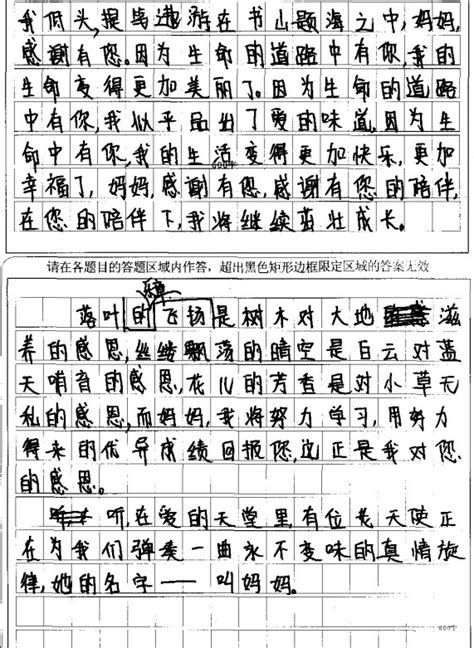 我低头,提笔遨游在书山题海之中,妈妈,
感谢有您。因为生命的道路中有你,我的
生命变得更加美丽了。因为生命的道路
中有你,我似乎品出了爱的味道,因为生
命中有你,我的生活变得更加快乐,更加
600字
幸福了,妈妈,感谢有您,感谢有您的陪伴,
在您的陪伴下,我将继续茁壮成长。
请在各题目的答题区域内作答，超出黑色矩形边框限定区域的答案无效
落叶的飞扬是树木对大地滋
养的感恩,丝缕飘荡的晴空是白云对蓝
天哨音的感恩,花儿的芳香是对小草无
私的感恩,而妈妈,我将努力学习,用努力
得来的优异成绩回报您,这正是我对您
的感恩。
听,在爱的天堂里有位老天使正
在为我们弹奏一曲永不变味的真情旋
律,她的名字——叫妈妈。
800字